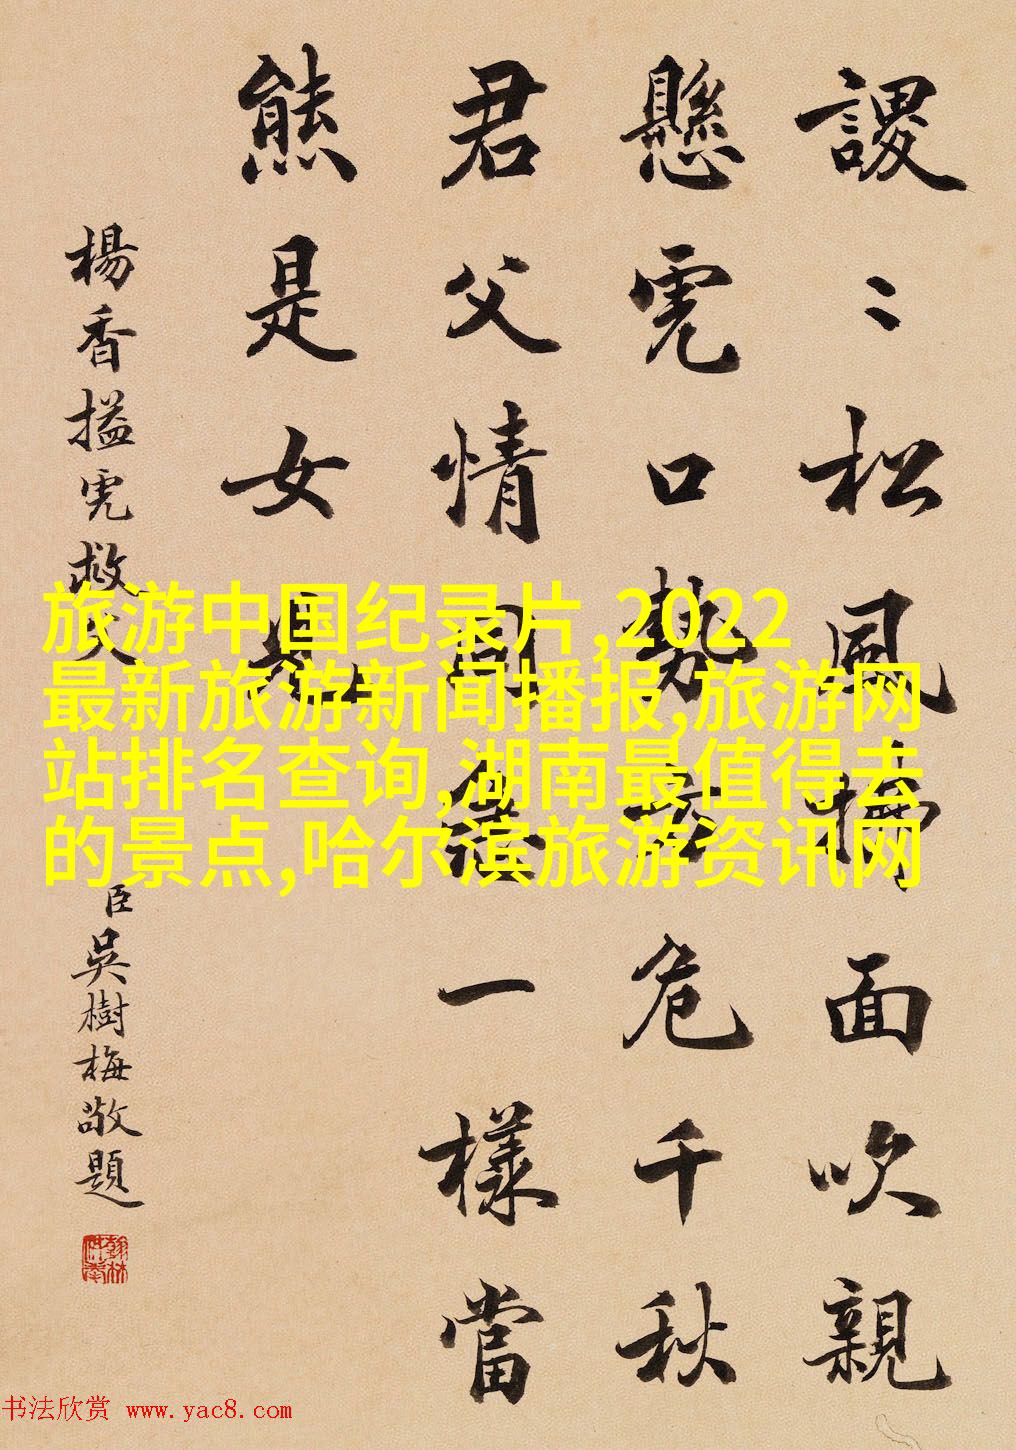 謖〻松風面吹親
懸虎口勢危千秋
君父情一樣當
熊是女兒
楊香搤虎救父
臣吳樹梅敬題
翰林供奉
旅游中国纪录片,2022
最新旅游新闻播报,旅游网
站排名查询,湖南最值得去
的景点,哈尔滨旅游资讯网
书法欣赏 www.yac8.com